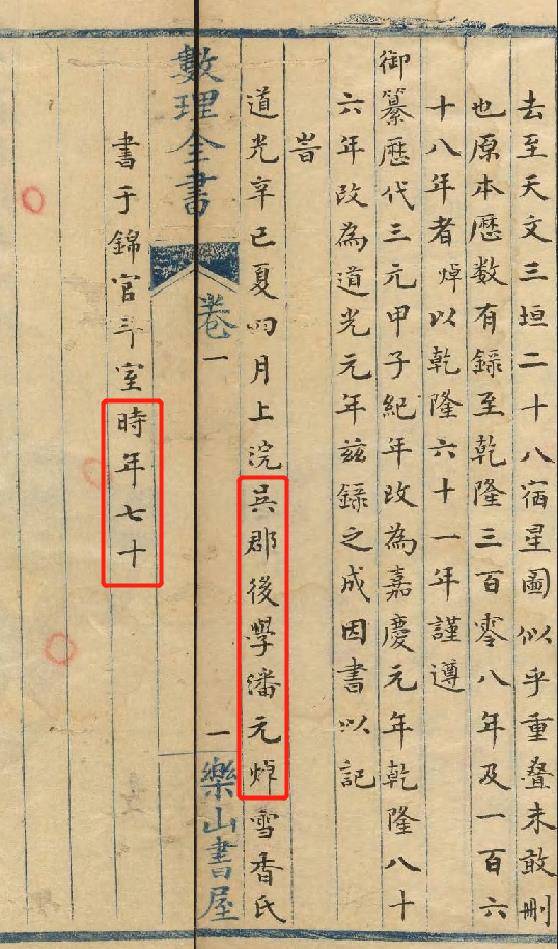 去至天文三垣二十八宿星圖似乎重叠未敢刪
也原本歷数有錄至乾隆三百零八年及一百六
十八年者焯以乾隆六十一年謹遵
御纂歷代三元甲子紀年改為嘉慶元年乾隆八十
六年改為道光元年玆錄之成因書以記
旹
道光辛巳夏四月上浣吳郡後學潘元焯雪香氏
數理全書 卷一 一 樂山書屋
書于錦官斗室時年七十